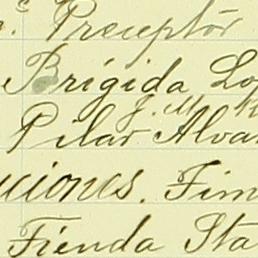 Preceptór
Brígida Lo
Pilar Alva
uciones. Fim
Fienda Sta